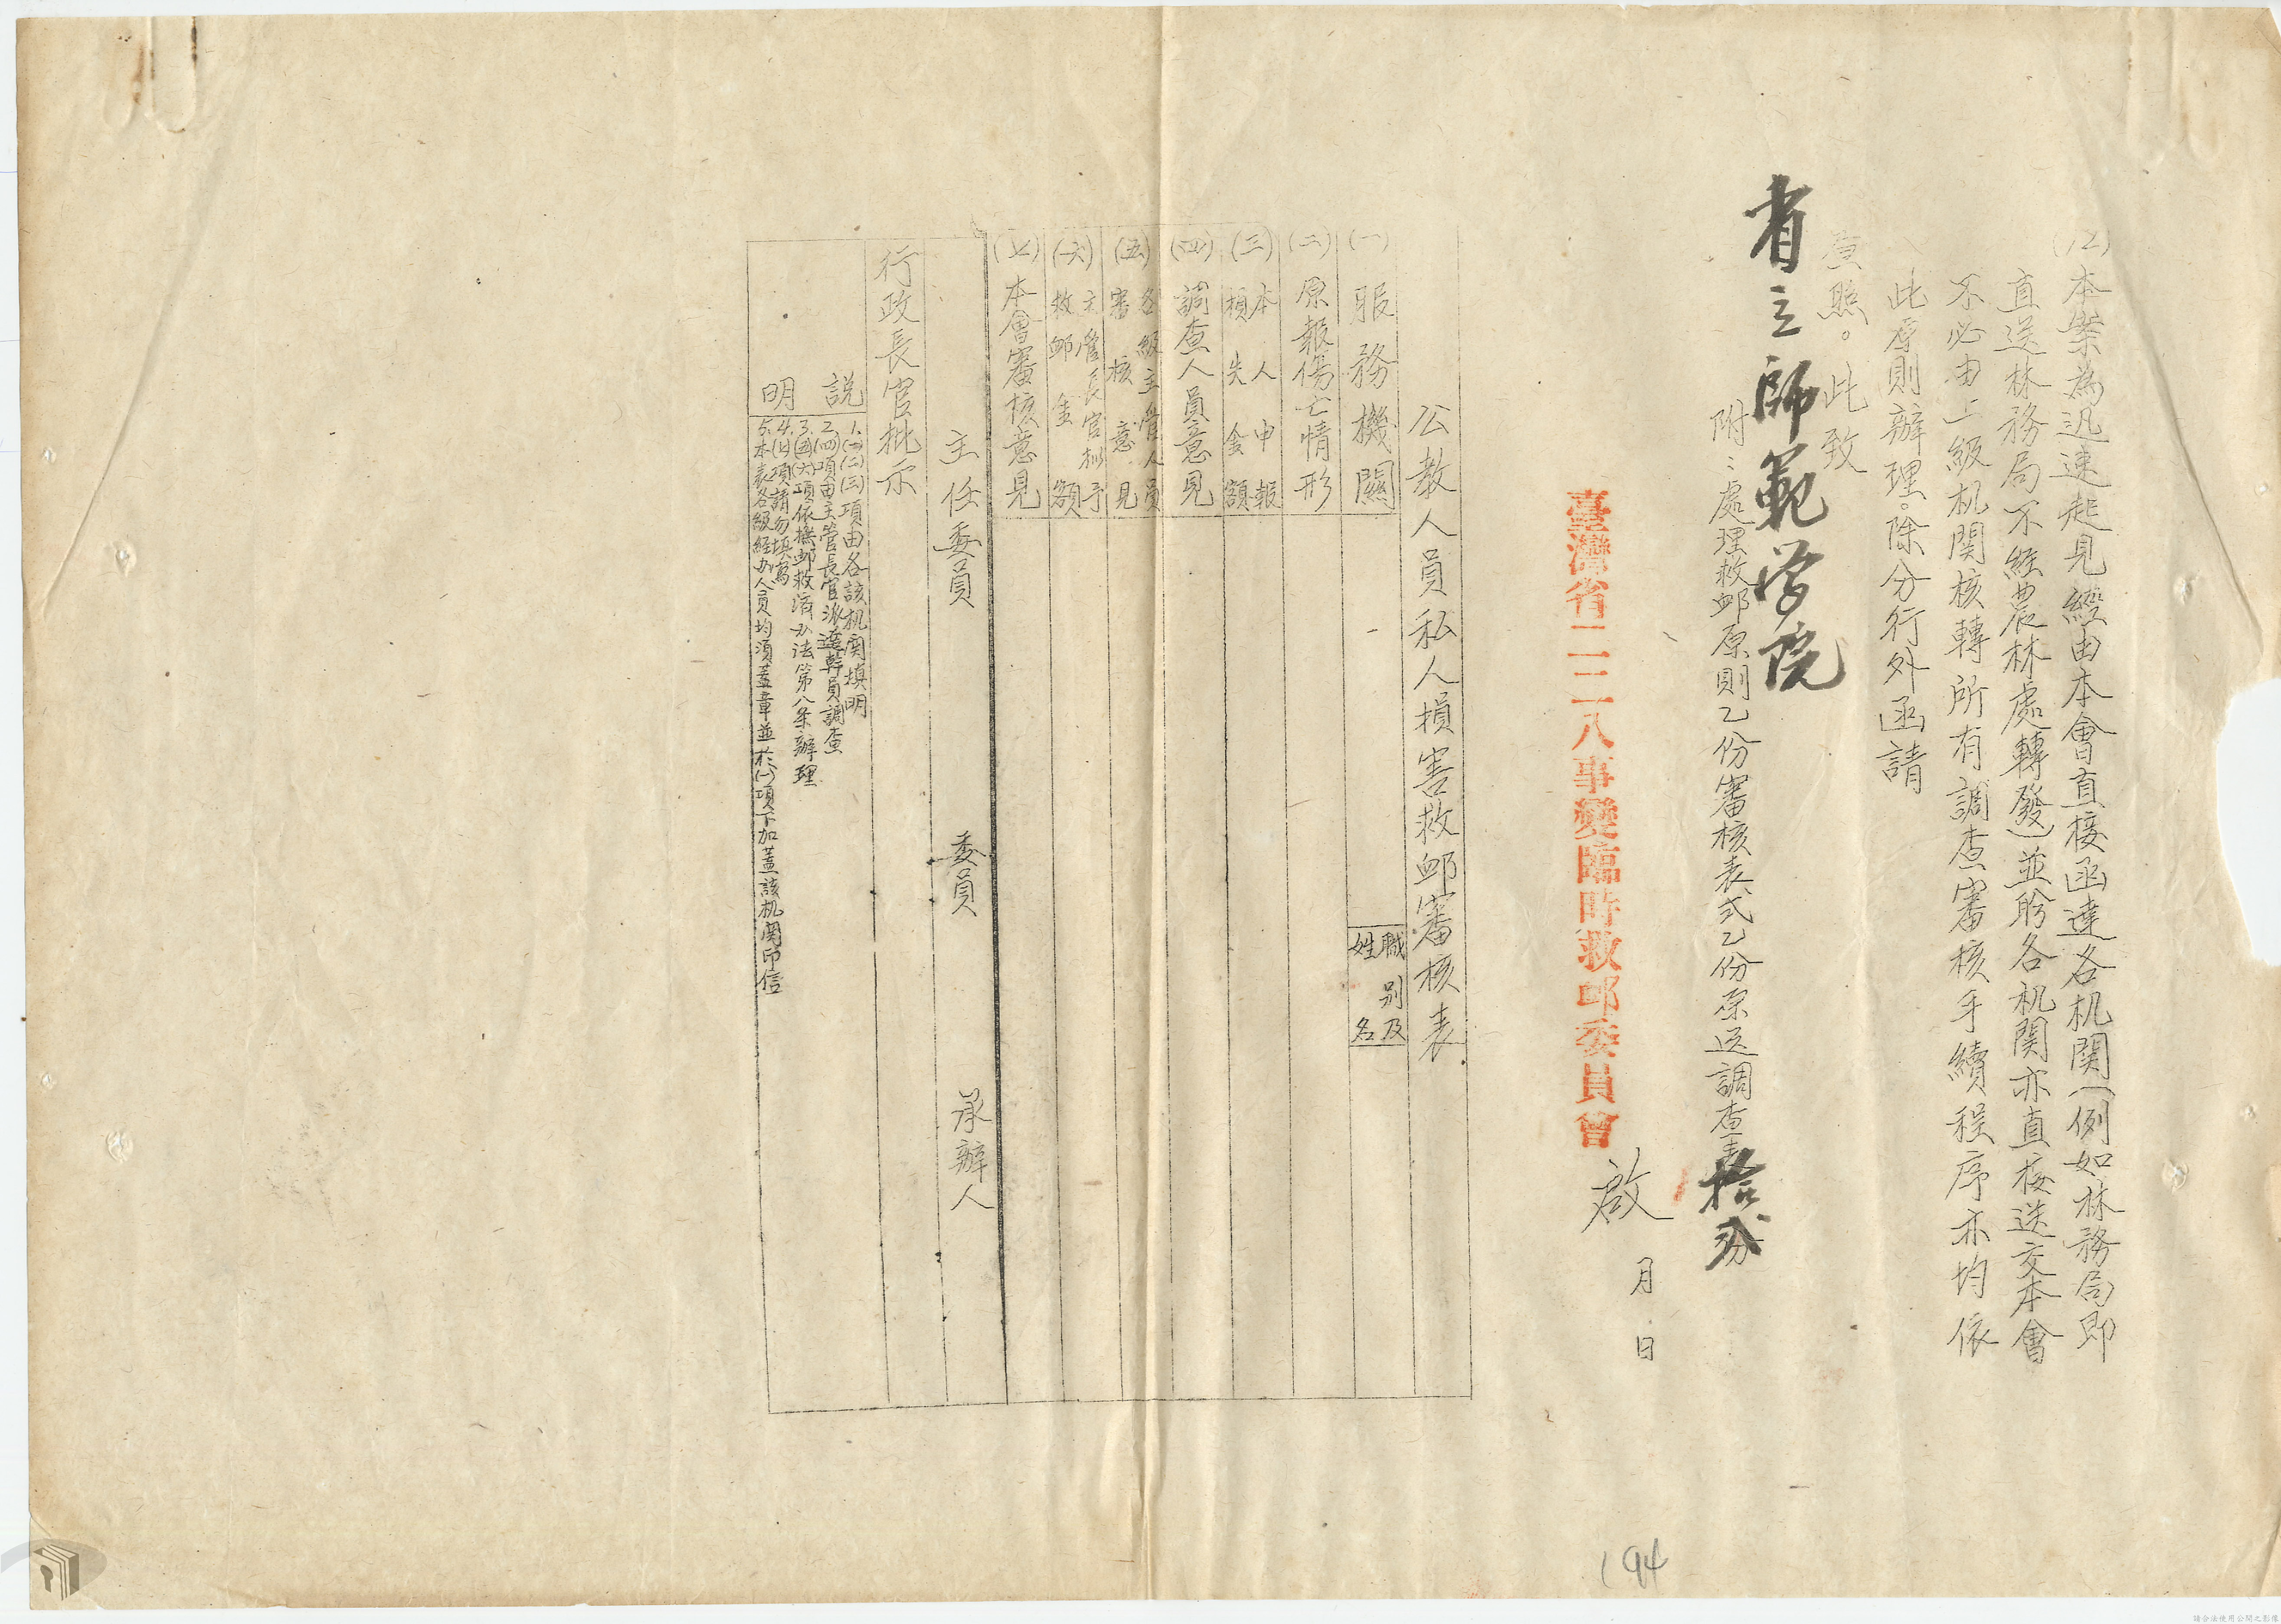 (12)本案為迅速起見經由本會直接函達各机関(例如林務局即
直送林務局不經農林處轉發)並盼各机関亦直接送交本會
不必由上級机関核轉所有調查審核手續程序亦均依
此原則辦理。除分行外函請
查照。此致
省立師範学院
附:處理救卹原則乙份審核表式乙份原送調查表拾貳份
臺灣省二二八事變臨時救卹委員會 啟 月 日
公教人員私人損害救卹審核表
(一)服務機關
職別及
姓名
(二)原報傷亡情形
(三)本人申報
損失金額
(四)調查人員意見
(五)各級主管人員
審核意見
(六)主管長官擬予
救卹金額
(七)本會審核意見
主任委員 委員 承辦人
行政長官批示
説明
1.(一)(二)(三)項由各該机関填明
2.(四)項由主管長官派遣幹員調查
3.(五)(六)項依撫卹救濟办法第八条辦理
4.(七)項請勿填寫
5.本表各級經办人員均須蓋章並於(一)項下加蓋該机関印信
194
請合法使用公開之影像